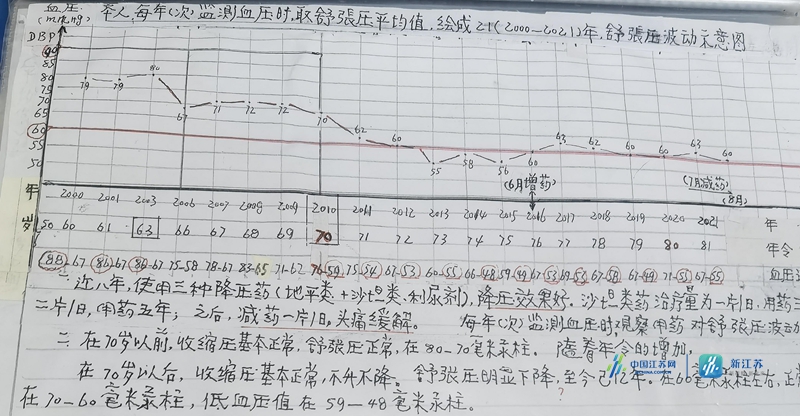 血压: 本人每年(次)监测血压时,取舒張压平均值,绘成21(2000-2021)年,舒張压波动示意图
(mmHg)
DBP
90
85
80
75
70
65
60
55
50
79 79 80 67 71 72 72 70 62 60 55 58 56 60 63 62 60 60 63 60
(6月增药) (7月减药) (8月)
年 2000 2001 2003 2006 2007 2008 2009 2010 2011 2012 2013 2014 2015 2016 2017 2018 2019 2020 2021 年
岁 50 60 61 63 66 67 68 69 70 71 72 73 74 75 76 77 78 79 80 81 年令
88-67 86-67 86-67 75-58 78-67 83-65 71-62 76-59 75-54 67-53 60-55 66-48 59-49 67-53 69-53 67-58 67-49 71-55 67-55 血压
一 近八年,使用三种降压药(地平类+沙坦类、利尿剂),降压效果好。沙坦类药治疗量为一片/日,用药三
二片/日,用药五年; 之后,减药一片/日,头痛缓解。 每年(次)监测血压时观察用药对舒張压波动
二 在70岁以前,收缩压基本正常,舒張压正常,在80-70毫米汞柱。随着年令的增加,
在70岁以后,收缩压基本正常,不升不降; 舒張压明显下降,至今已12年。在60毫米汞柱左右,正常
在70-60毫米汞柱,低血压值在59-48毫米汞柱。
中国江苏网
新江苏